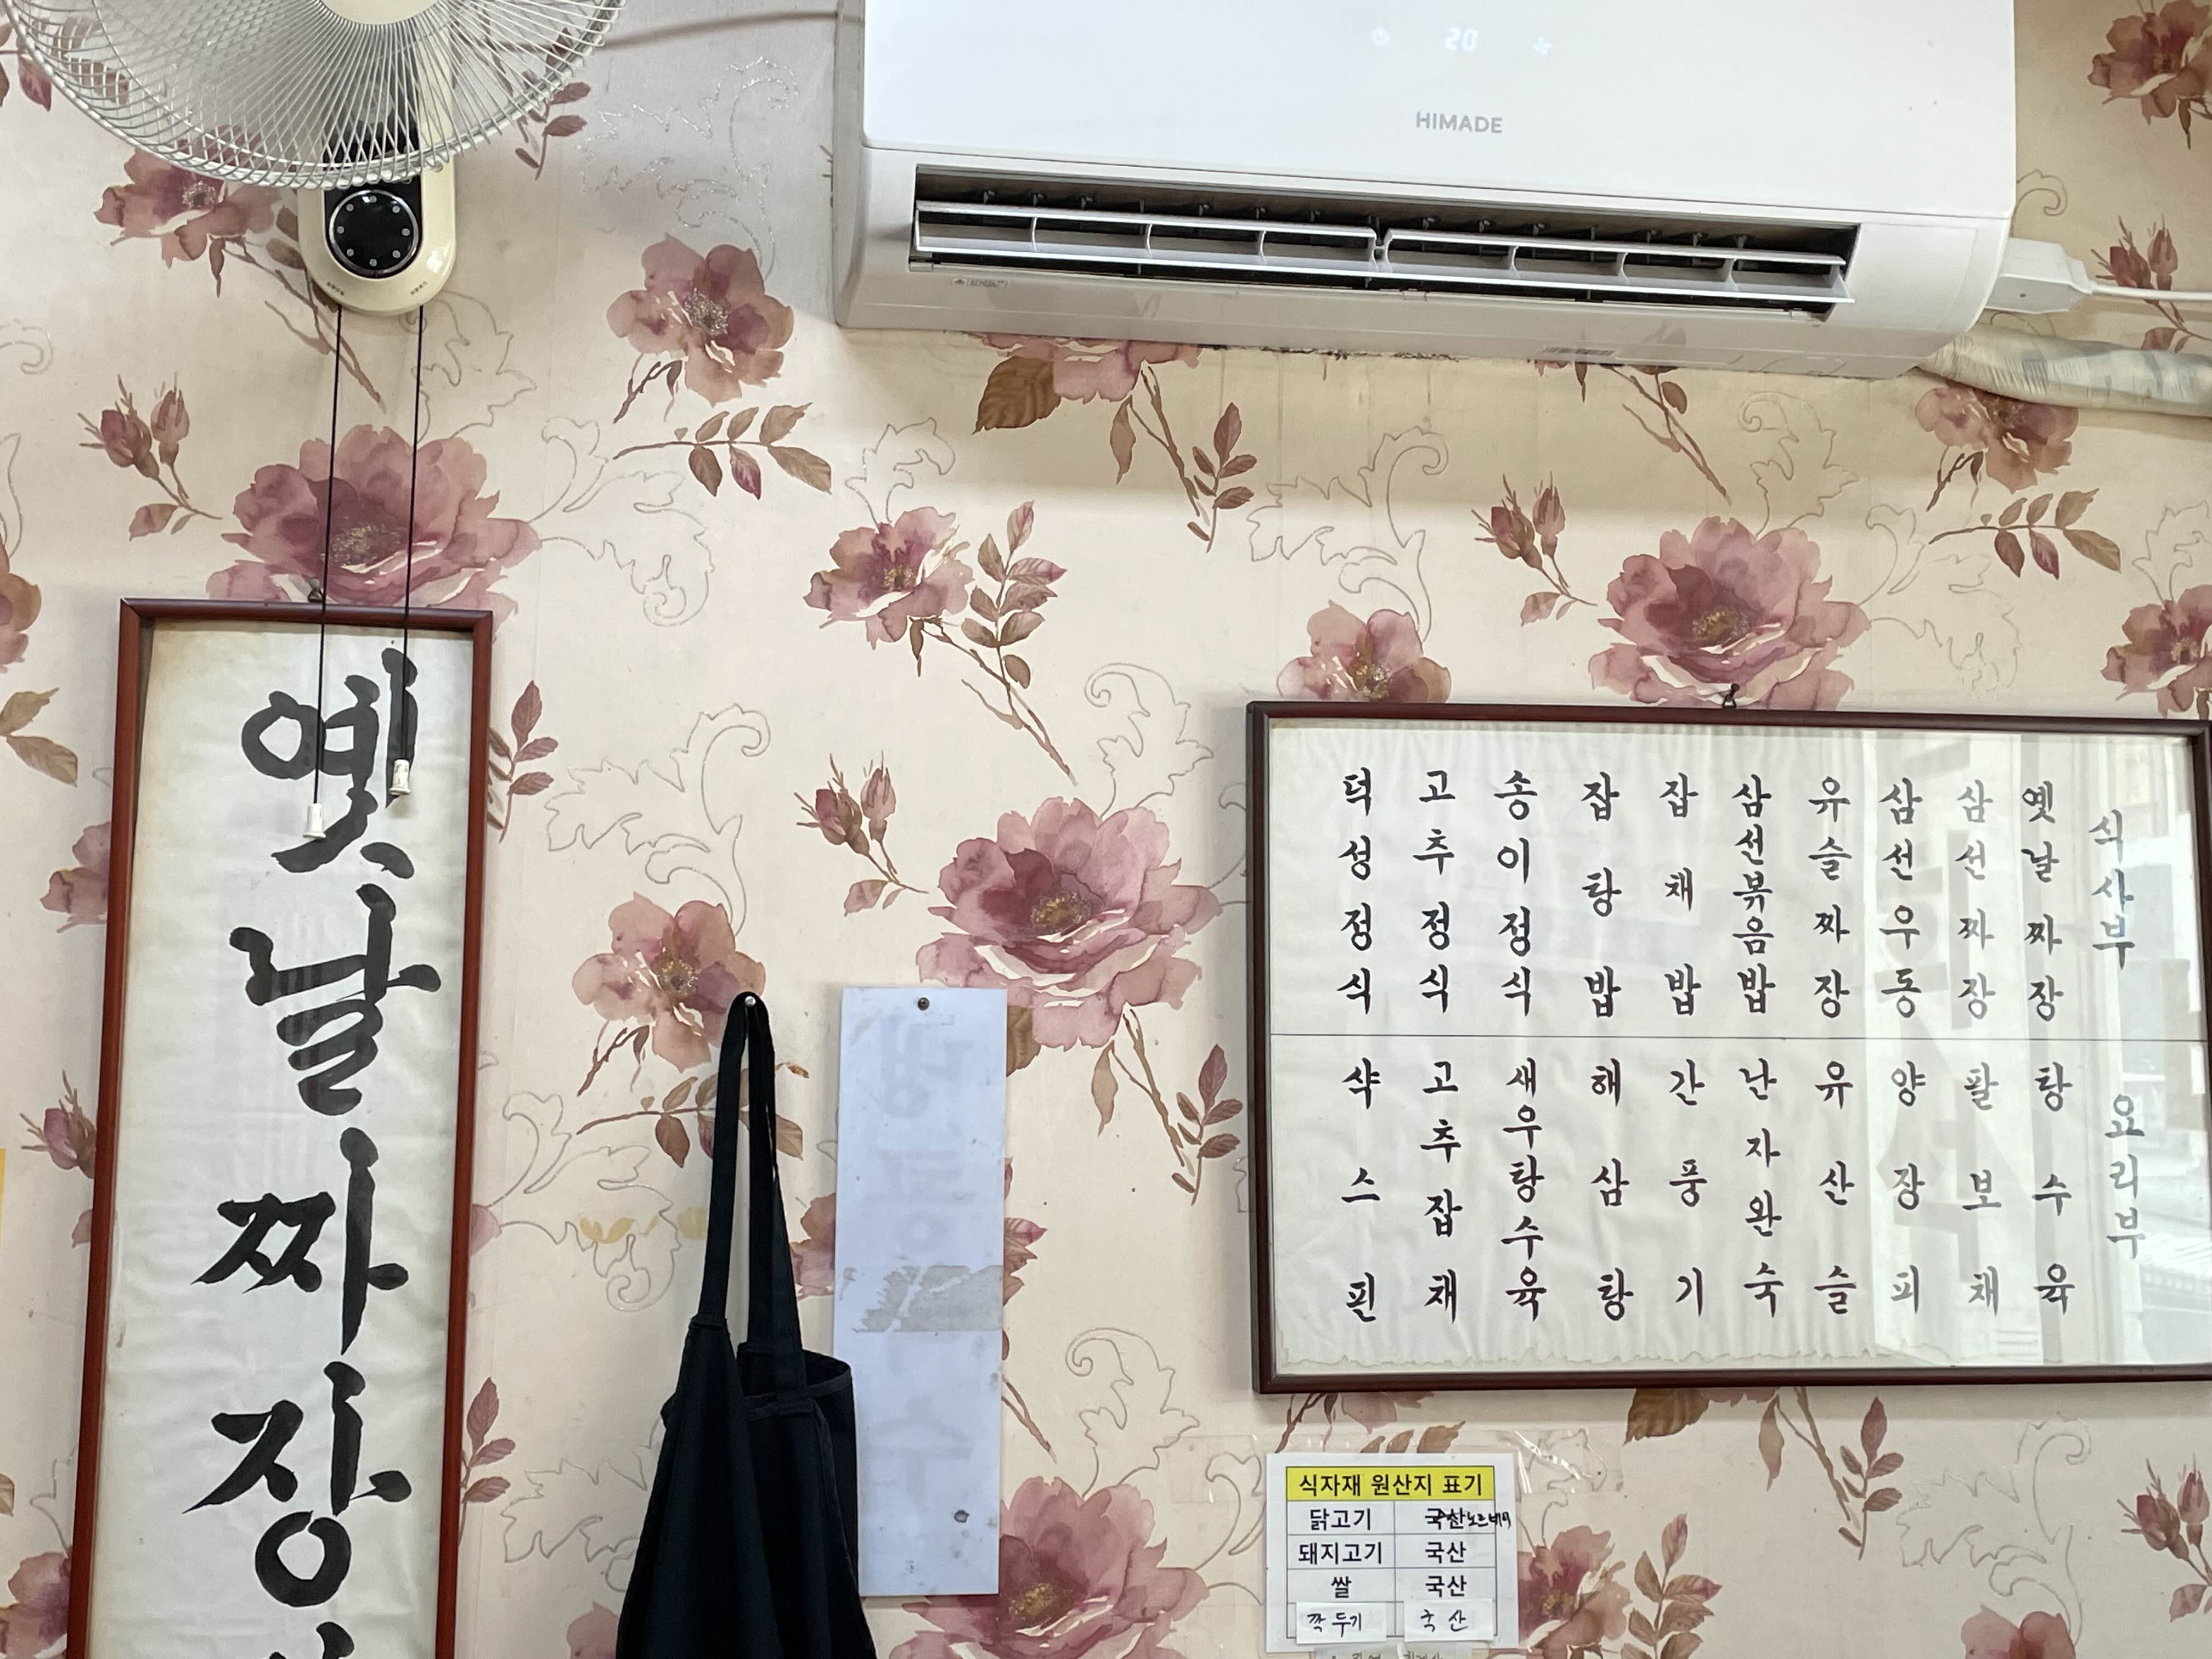 20
HIMADE
옛날짜장
식사부
옛날짜장
삼선짜장
삼선우동
유슬짜장
삼선볶음밥
잡채밥
잡탕밥
송이정식
고추정식
덕성정식
요리부
탕수육
팔보채
양장피
유산슬
난자완숙
간풍기
해삼탕
새우탕수육
고추잡채
샥스핀
식자재 원산지 표기
닭고기 국산
돼지고기 국산
쌀 국산
깍두기 국산